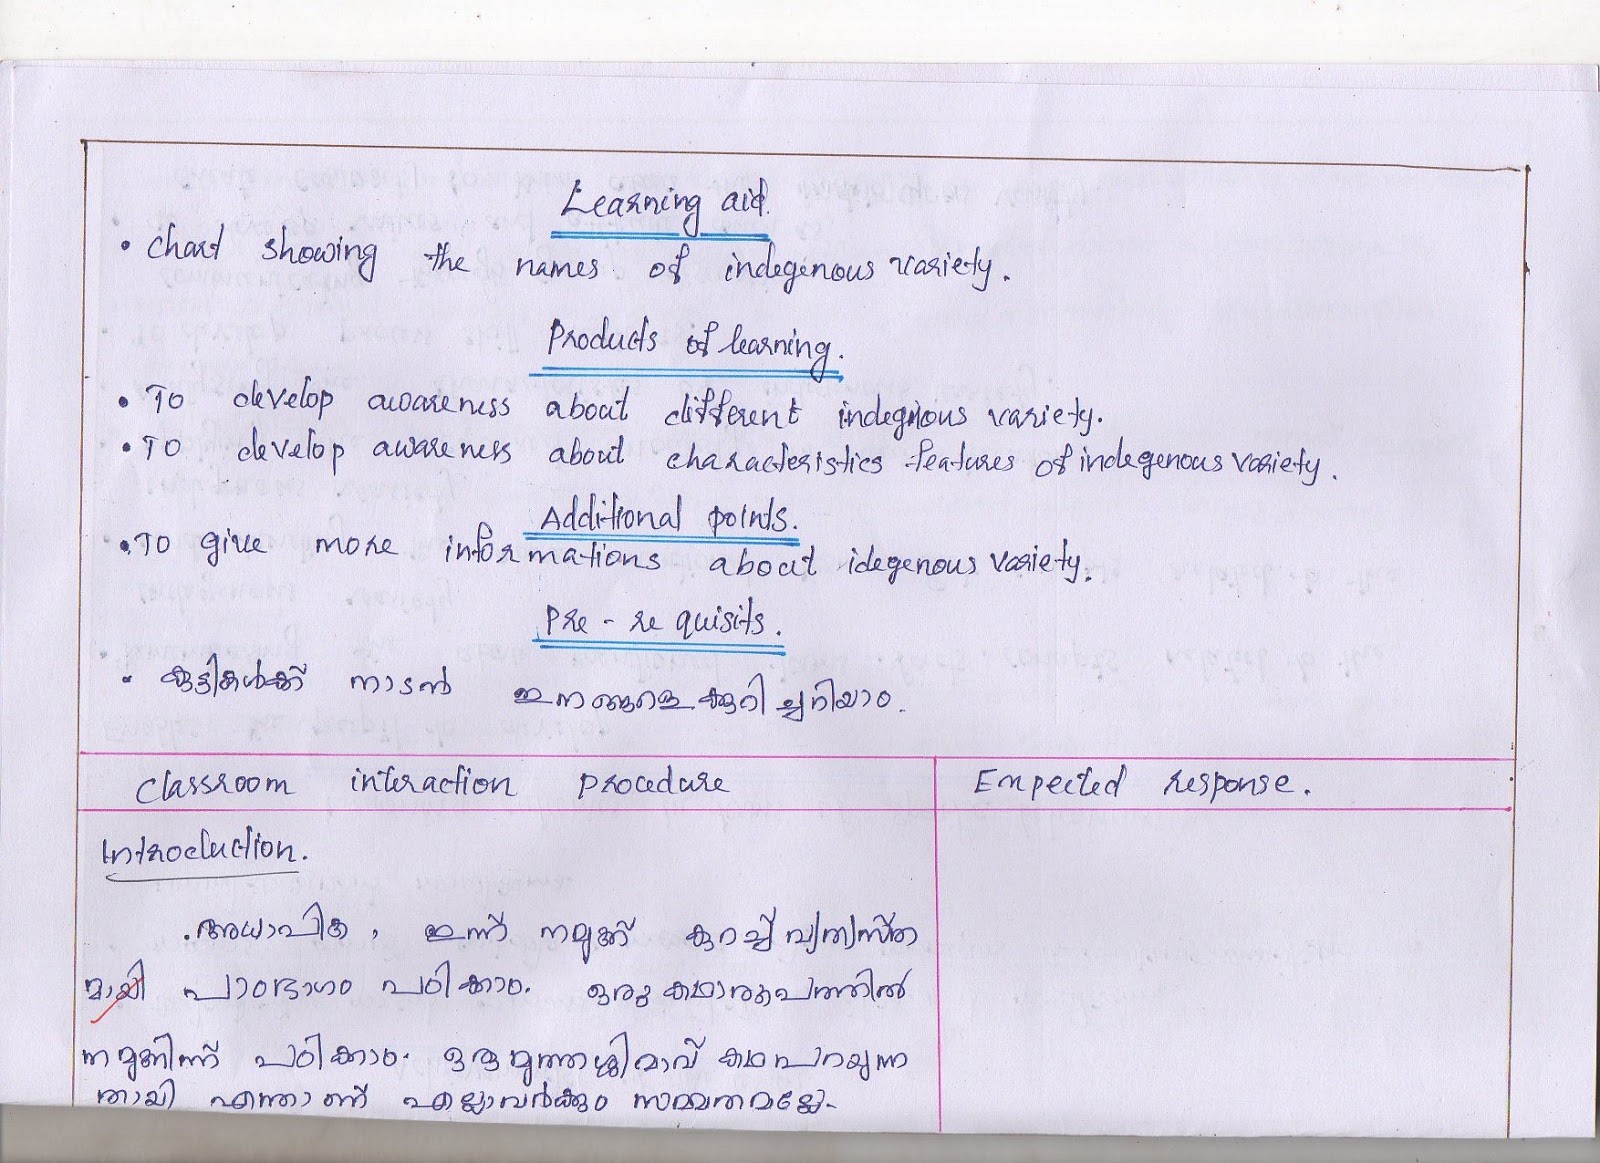 Learning aid.
• Chart showing the names of indegenous variety.
Products of learning.
• To develop awareness about different indegnious variety.
• To develop awareness about characteristics features of indegenous variety.
Additional points.
• To give more informations about idegenous variety.
Pre - re quisits.
• കുട്ടികൾക്ക് നാടൻ ഇനങ്ങളെക്കുറിച്ചറിയാം.
Classroom interaction procedure
Empected response.
Introduction.
അധ്യാപിക, ഇന്ന് നമുക്ക് കുറച്ച് വ്യത്യസ്ത
മായി പാഠഭാഗം പഠിക്കാം. ഒരു കഥാരൂപത്തിൽ
നമുക്കിന്ന് പഠിക്കാം. ഒരു മുത്തശ്ശിമാവ് കഥ പറയുന്ന
തായി എന്താണ് എല്ലാവർക്കും സമ്മതമല്ലേ.